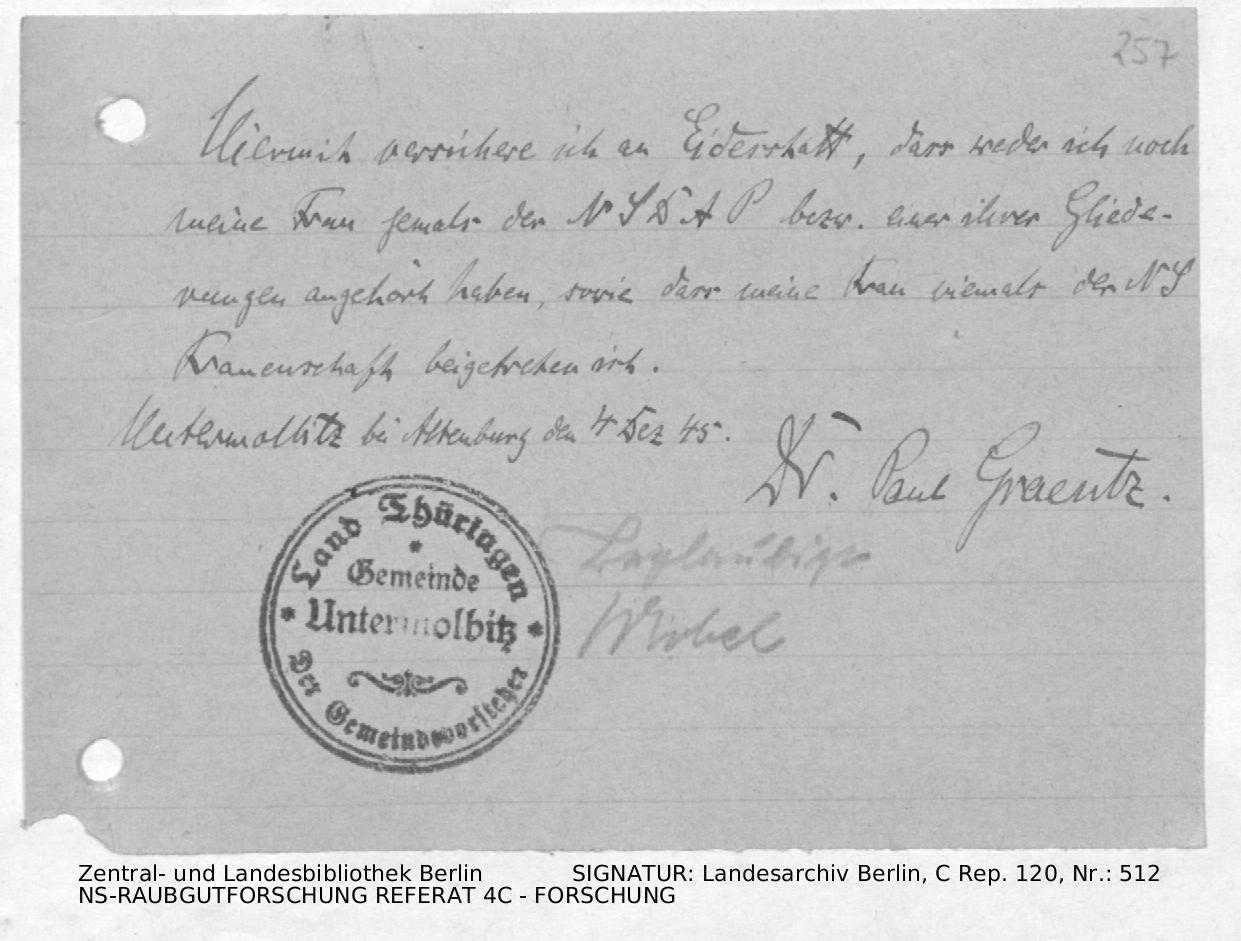 257
Hiermit versichere ich an Eidesstatt, dass weder ich noch
meine Frau jemals der N S D A P bezw. einer ihrer Gliede-
rungen angehört haben, sowie dass meine Frau niemals der N S
Frauenschaft beigetreten ist.
Untermolbitz bei Altenburg den 4 Dez 45.
Dr. Paul Graentz.
Land Thüringen
Gemeinde
Untermolbitz
Der Gemeindevorsteher
Beglaubigt
Zentral- und Landesbibliothek Berlin SIGNATUR: Landesarchiv Berlin, C Rep. 120, Nr.: 512
NS-RAUBGUTFORSCHUNG REFERAT 4C - FORSCHUNG